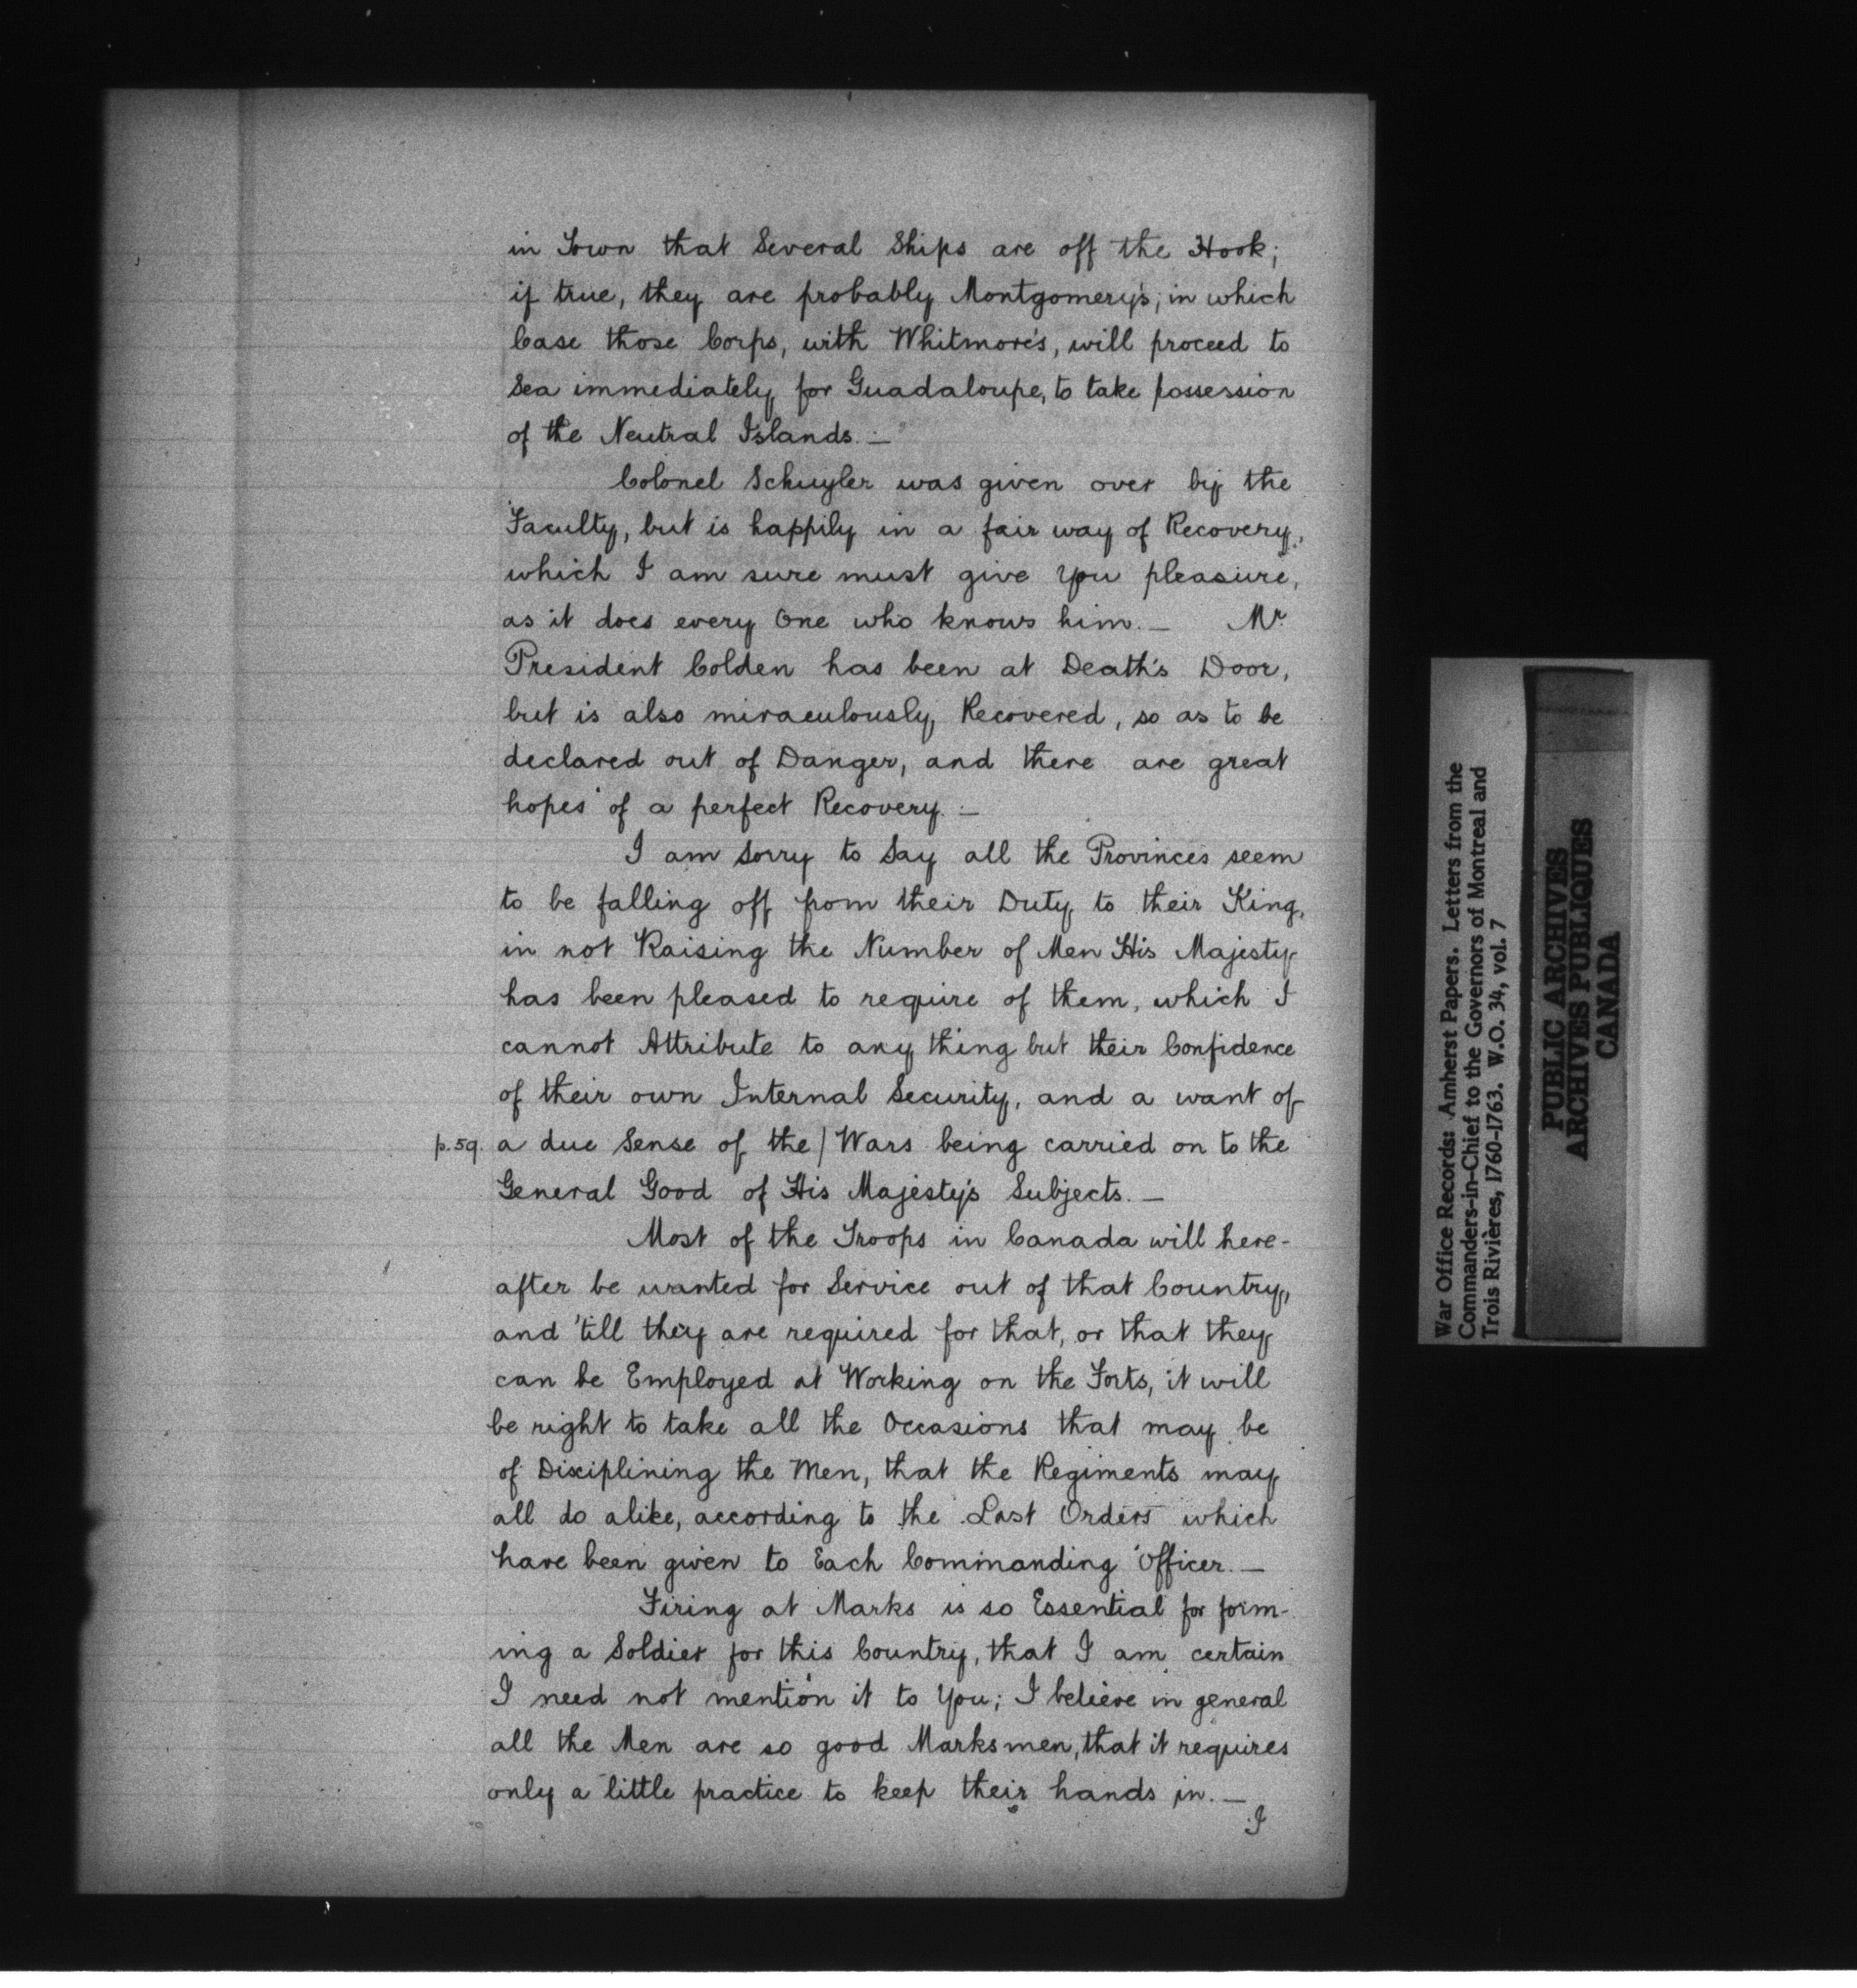 in Town that Several Ships are off the Hook;
if true, they are probably Montgomery's; in which
Case those Corps, with Whitmore's, will proceed to
Sea immediately for Guadaloupe, to take possession
of the Neutral Islands. —
Colonel Schuyler was given over by the
Faculty, but is happily in a fair way of Recovery,
which I am sure must give You pleasure,
as it does every One who knows him. — Mr.
President Colden has been at Death's Door,
but is also miraculously Recovered, so as to be
declared out of Danger, and there are great
hopes of a perfect Recovery. —
I am Sorry to Say all the Provinces seem
to be falling off from their Duty to their King,
in not Raising the Number of Men His Majesty
has been pleased to require of them, which I
cannot Attribute to any thing but their Confidence
of their own Internal Security, and a want of
p.59. a due Sense of the / Wars being carried on to the
General Good of His Majesty's Subjects. —
Most of the Troops in Canada will here-
after be wanted for Service out of that Country,
and 'till they are required for that, or that they
can be Employed at Working on the Forts, it will
be right to take all the Occasions that may be
of Disciplining the Men, that the Regiments may
all do alike, according to the Last Orders which
have been given to Each Commanding Officer. —
Firing at Marks is so Essential for form-
ing a Soldier for this Country, that I am certain
I need not mention it to You; I believe in general
all the Men are so good Marksmen, that it requires
only a little practice to keep their hands in. —
I
War Office Records: Amherst Papers. Letters from the
Commanders-in-Chief to the Governors of Montreal and
Trois Rivières, 1760-1763. W.O. 34, vol. 7
PUBLIC ARCHIVES
ARCHIVES PUBLIQUES
CANADA